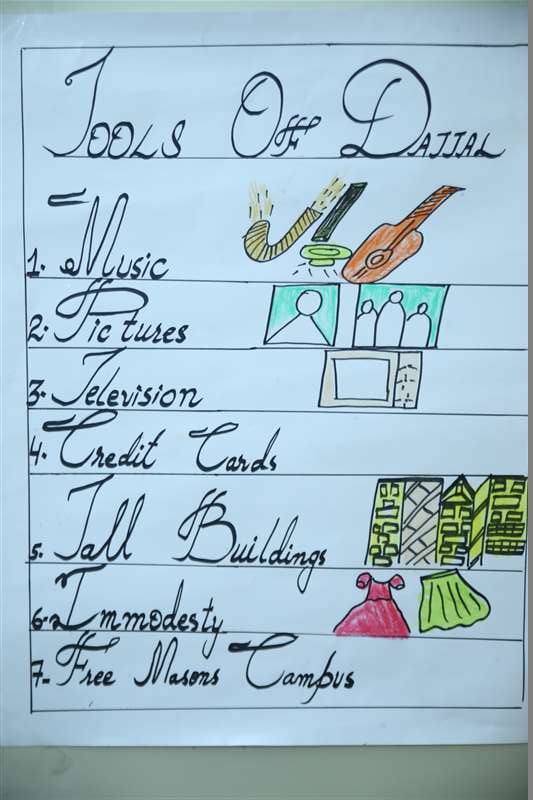 Tools Off Dajjal
1. Music
2. Pictures
3. Television
4. Credit Cards
5. Tall Buildings
6. Immodesty
7- Free Masons Campus